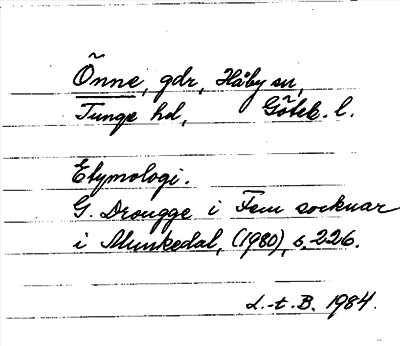 Önne, gdr, Håby sn,
Tunge hd, Göteb. l.
Etymologi.
G. Drougge i Fem socknar
i Munkedal, (1980), s. 226.
L.-t. B. 1984.